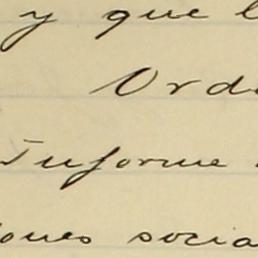 y que l
Orde
Informe
iones socia